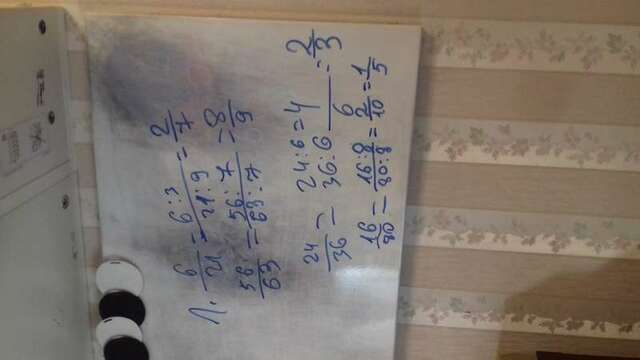 1. 6/21 = 6:3/21:9 = 2/7
56/63 = 56:7/63:7 = 8/9
24/36 = 24:6/36:6 = 4/6 = 2/3
16/80 = 16:8/80:8 = 2/10 = 1/5